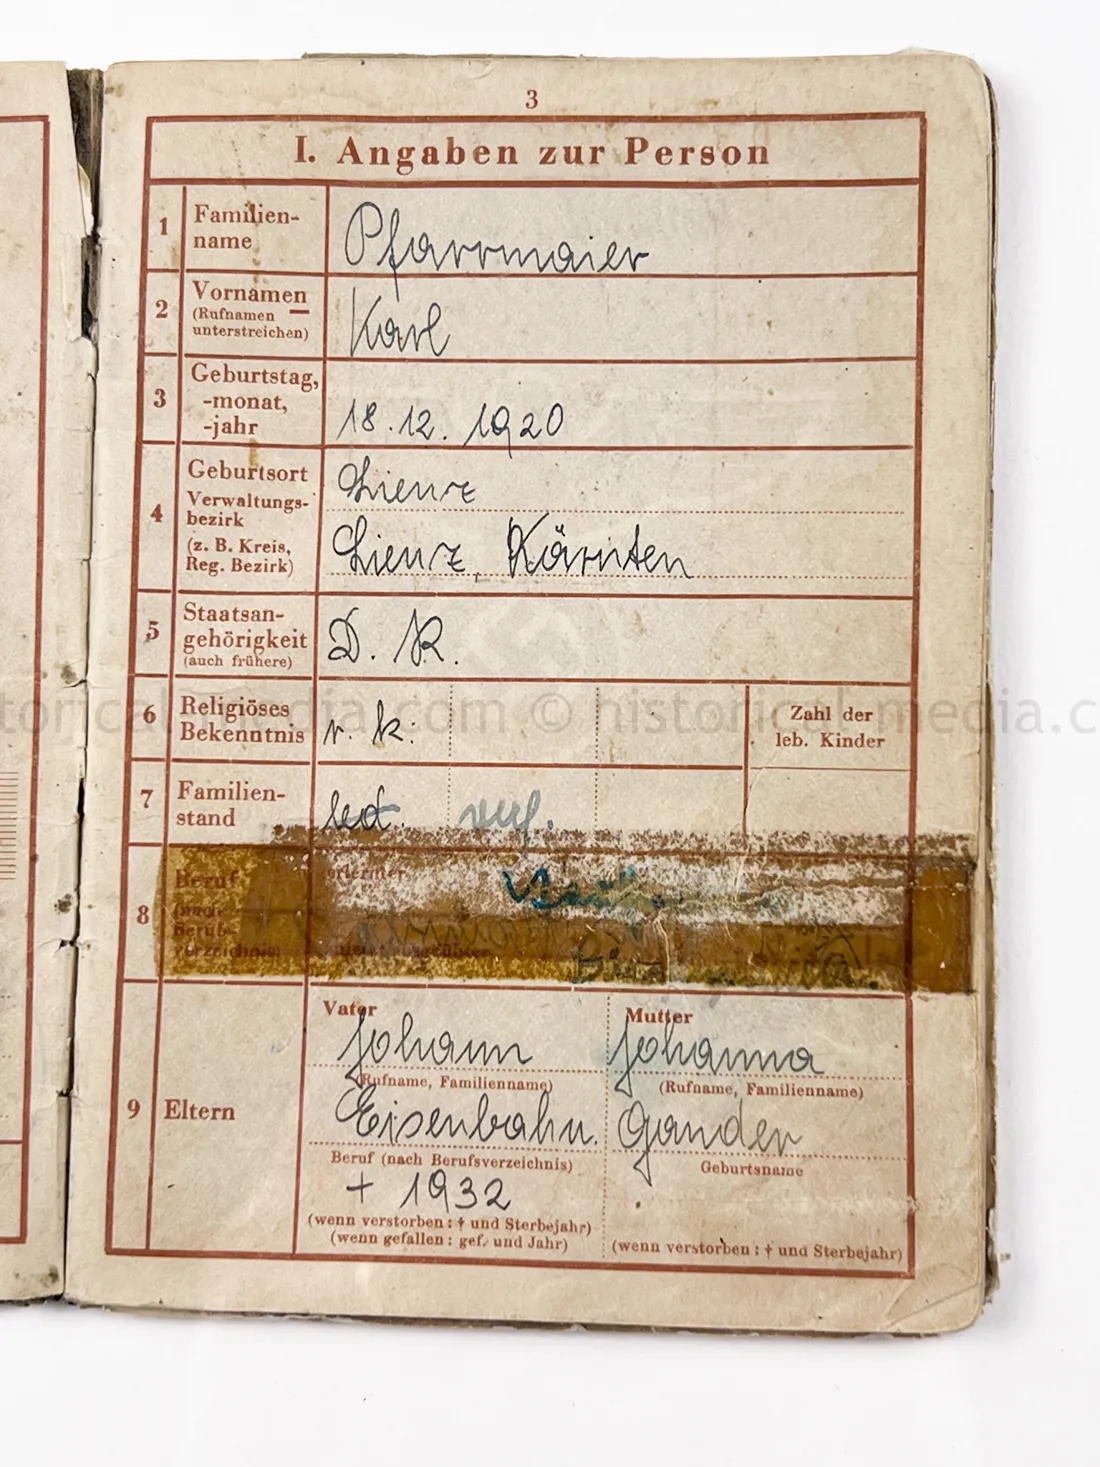 3
I. Angaben zur Person
1 Familien-
name
Pfarrmaier
2 Vornamen
(Rufnamen
unterstreichen)
Karl
3 Geburtstag,
-monat,
-jahr
18.12.1920
4 Geburtsort
Verwaltungs-
bezirk
(z. B. Kreis,
Reg. Bezirk)
Lienz
Lienz, Kärnten
5 Staatsan-
gehörigkeit
(auch frühere)
D. R.
6 Religiöses
Bekenntnis
r. k.
Zahl der
leb. Kinder
torical-media.com © historical-media.c
7 Familien-
stand
led.
8 Beruf
(nach
Berufs-
verzeichnis)
9 Eltern
Vater
Johann
(Rufname, Familienname)
Eisenbahn.
Beruf (nach Berufsverzeichnis)
+ 1932
(wenn verstorben: † und Sterbejahr)
(wenn gefallen: gef. und Jahr)
Mutter
Johanna
(Rufname, Familienname)
Gander
Geburtsname
(wenn verstorben: † und Sterbejahr)